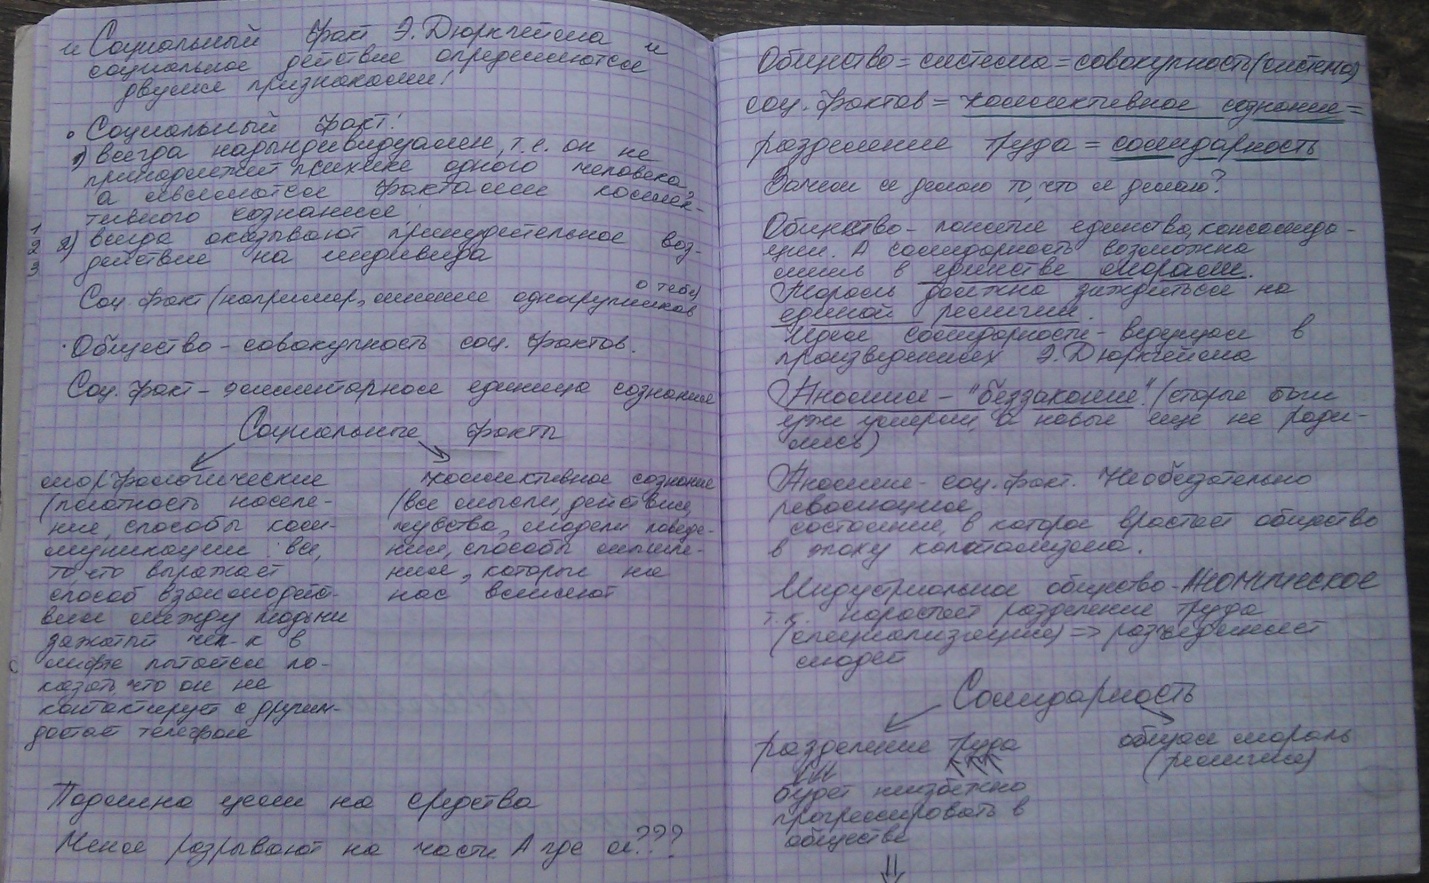 и Социальный факт Э. Дюркгейма и
социальное действие определяются
двумя признаками!
• Социальный факт:
1) всегда надындивидуален, т.е. он не
принадлежит психике одного человека,
а являются фактами коллек-
тивного сознания;
1
2 2) всегда оказывают принудительное воз-
3 действие на индивида
о тебе)
Соц. факт (например, мнение одногруппников
· Общество – совокупность соц. фактов.
Соц. факт – элементарная единица сознания
Социальные факты
морфологические
(плотность населе-
ния, способы ком-
муникации : все,
то, что выражает
способ взаимодейст-
вия между людьми
зажатый чел-к в
лифте пытается по-
казать, что он не
контактирует с другим-
достает телефон
коллективное сознание
(все мысли, действия,
чувства, модели поведе-
ния, способы мышле-
ния, которые на
нас влияют
Подмена цели на средства
Меня разрывают на части А где я???
Общество = система = совокупность (система)
соц. фактов = коллективное сознание =
разделение труда = солидарность
Зачем я делаю то, что я делаю?
Общество – понятие единства, консолида-
ции. А солидарность возможна
лишь в единстве морали.
Мораль должна зиждиться на
единой религии.
Идея солидарности – ведущая в
произведениях Э. Дюркгейма
Аномия – "беззаконие" (старые боги
уже умерли а новые еще не роди-
лись)
Аномия – соц. факт. Необязательно
революция,
состояние, в которое врастает общество
в эпоху капитализма.
Индустриальное общество – Аномическое
т.к. нарастает разделение труда
(специализация) => разъединяет
людей
Солидарность
разделение труда
будет неизбежно
прогрессировать в
обществе
общая мораль
(религия)